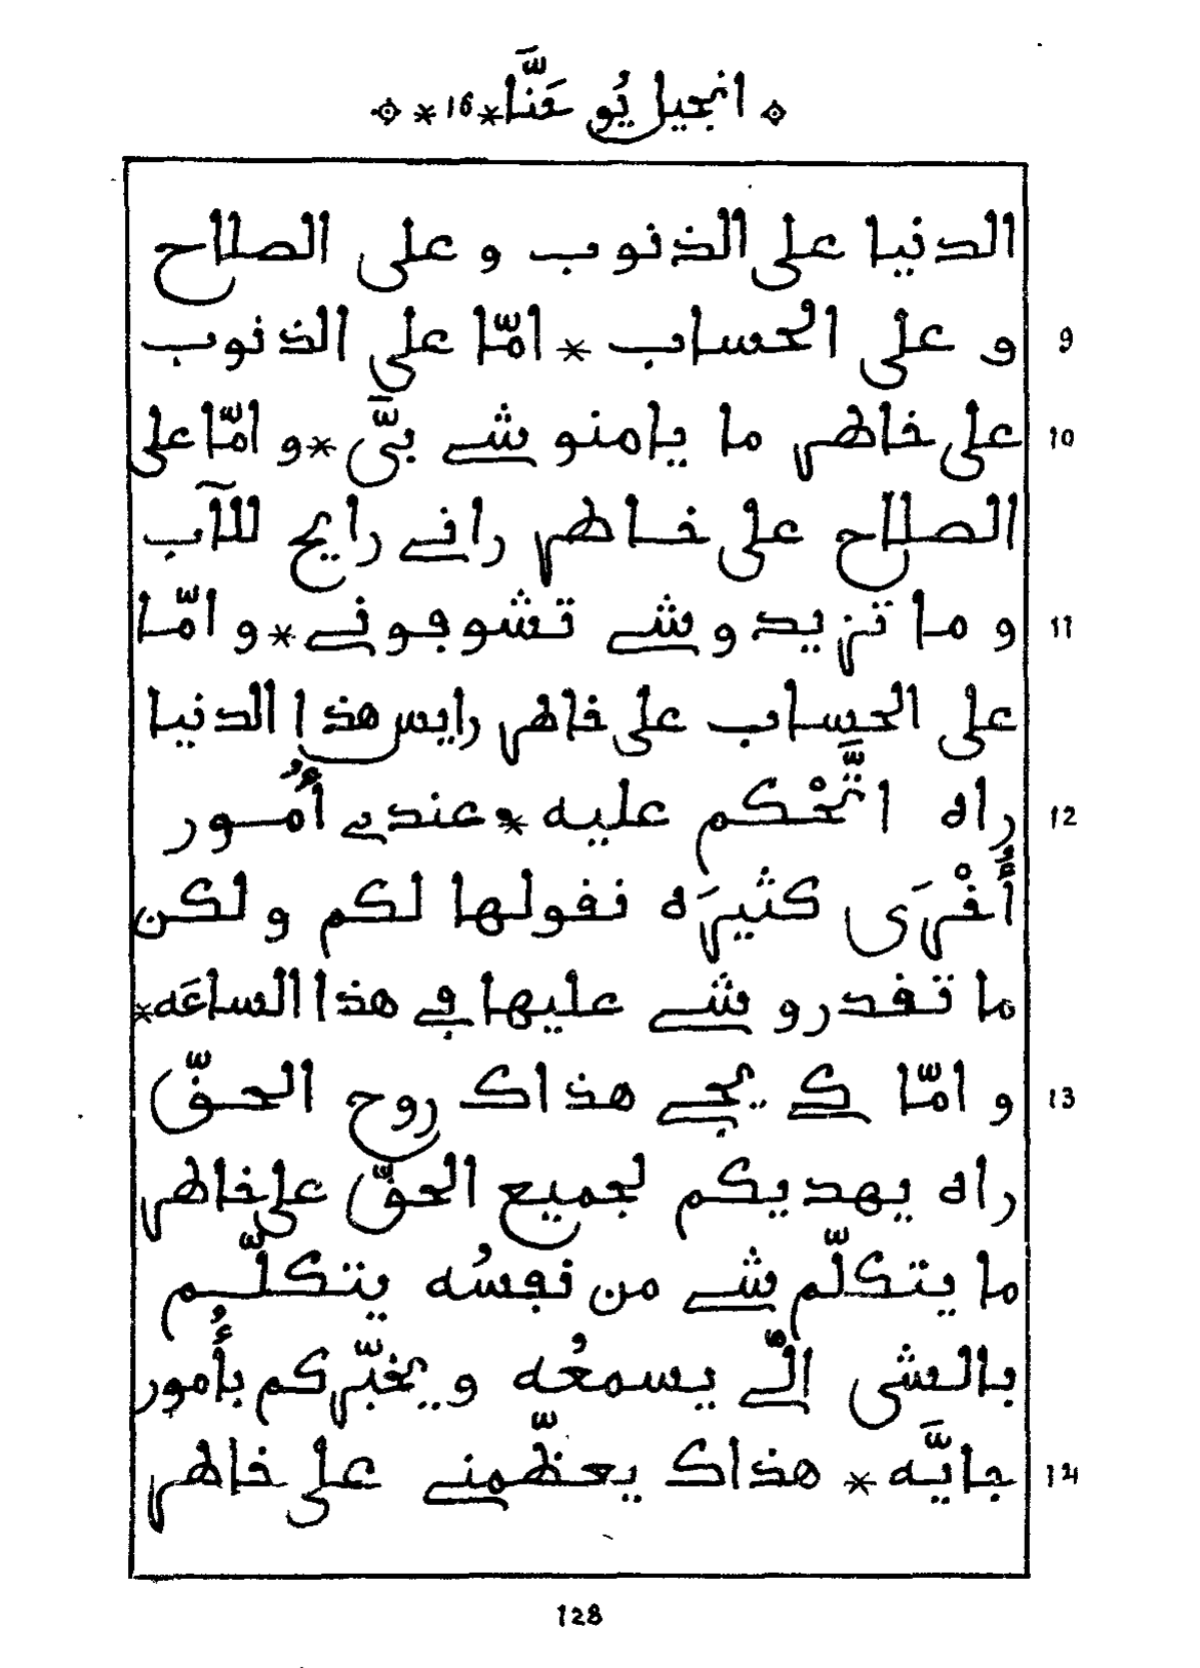 انجيل يُوحَنَّا * 16 *
الدنيا على الذنوب و على الصلاح
و على الحساب * امّا على الذنوب 9
على خاطر ما يامنو شے بيَّ * و امّا على 10
الصلاح على خاطر رانے رايح للآب
و ما تزيدو شے تشوڢونے * و امّا 11
على الحساب على خاطر رايس هذا الدنيا
راه اتَّحْكم عليه * عندے أُمور 12
أُخْرَى كثيرَه نڧولها لكم و لكن
ما تڧدرو شے عليها ڢے هذا الساعَه *
و امّا كے يجے هذاك روح الحڧّ 13
راه يهديكم لجميع الحڧّ على خاطر
ما يتكلّم شے من نڢسُه يتكلّم
بالشى الّے يسمعُه و يخبّركم بأُمور
جايَّه * هذاك يعظّمنے على خاطر 14
128